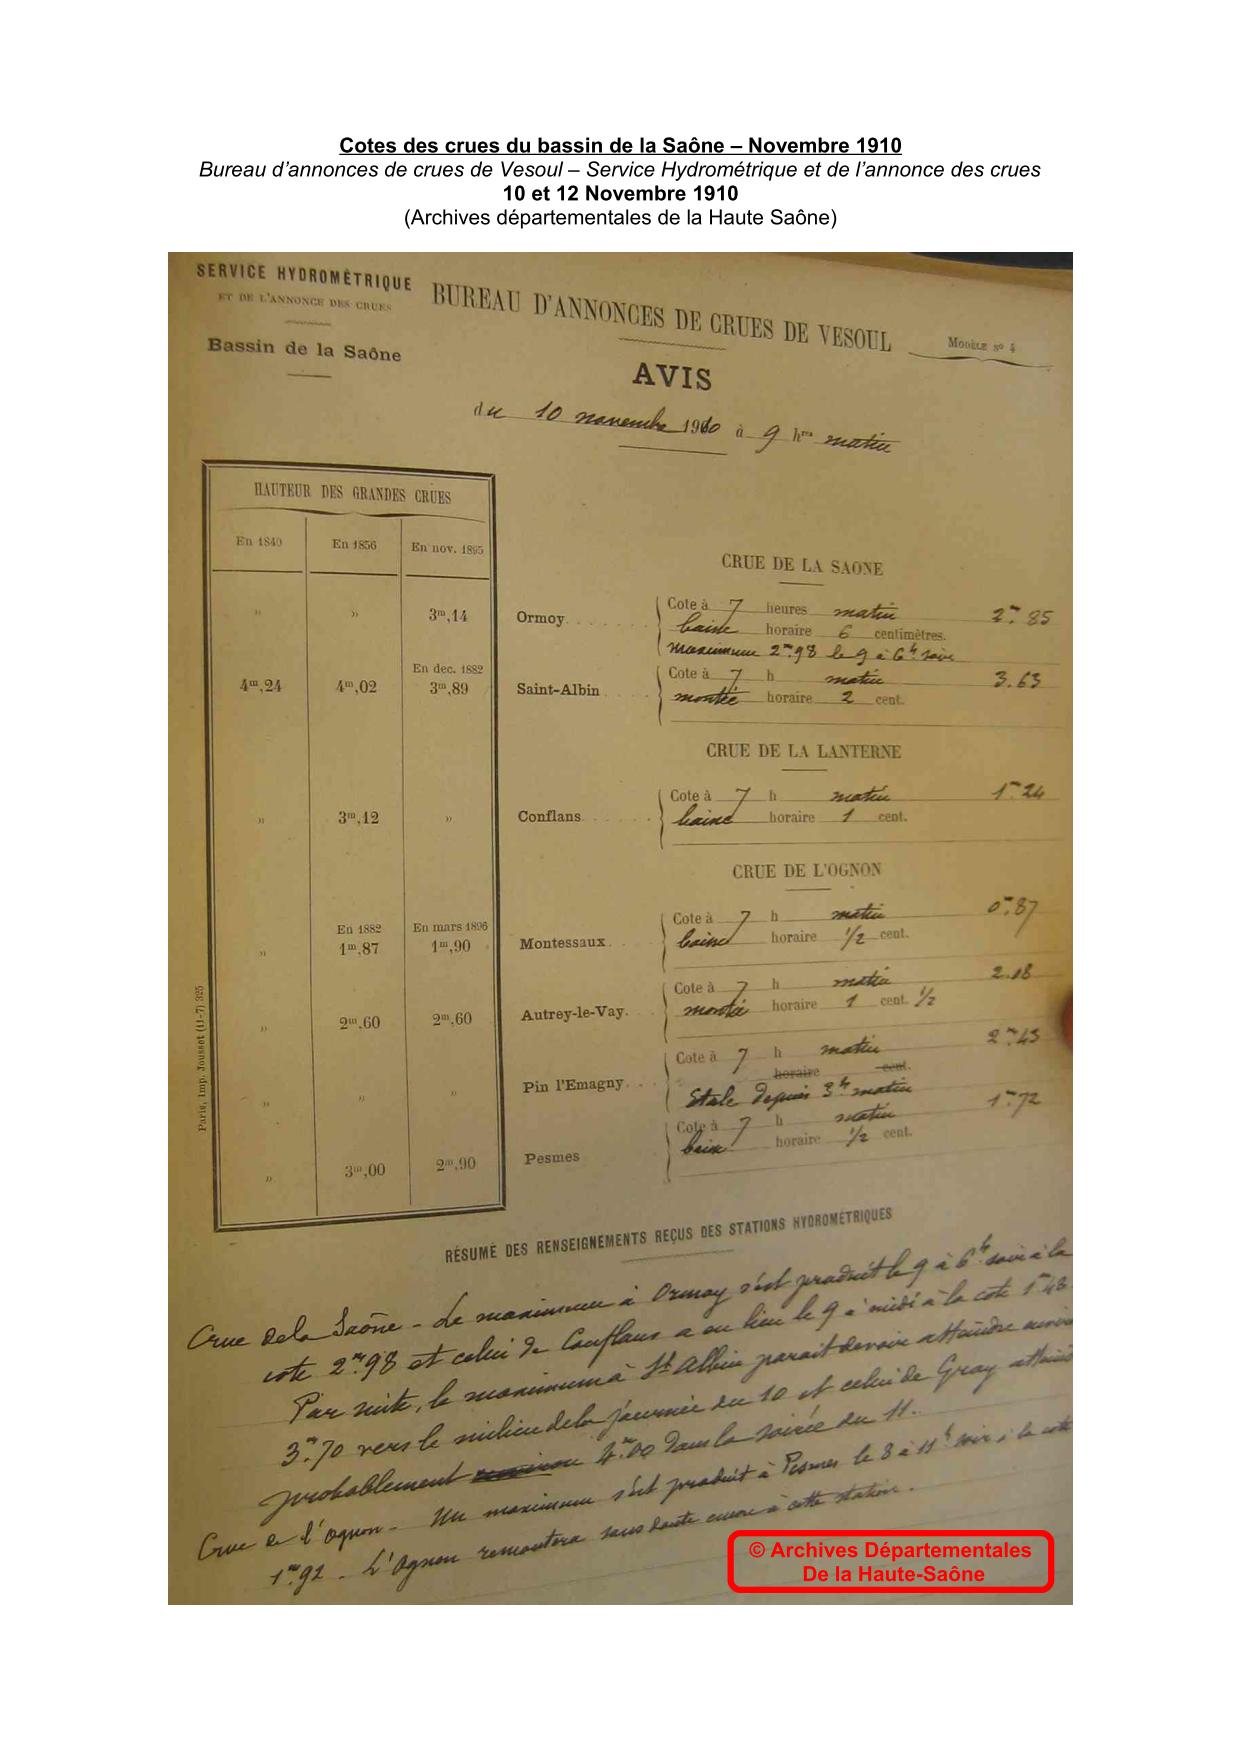 Cotes des crues du bassin de la Saône – Novembre 1910
Bureau d'annonces de crues de Vesoul – Service Hydrométrique et de l'annonce des crues
10 et 12 Novembre 1910
(Archives départementales de la Haute Saône)
SERVICE HYDROMÉTRIQUE
ET DE L'ANNONCE DES CRUES
Bassin de la Saône
BUREAU D'ANNONCES DE CRUES DE VESOUL
MODÈLE Nº 4
AVIS
du 10 novembre 1910 à 9 hres matin
HAUTEUR DES GRANDES CRUES
En 1840 En 1856 En nov. 1895
CRUE DE LA SAONE
" " 3m,14 Ormoy Cote à 7 heures matin 2m.85
baisse horaire 6 centimètres.
maximum 2m98 le 9 à 6h soir
En dec. 1882
4m,24 4m,02 3m,89 Saint-Albin Cote à 7 h matin 3.63
montée horaire 2 cent.
CRUE DE LA LANTERNE
" 3m,12 " Conflans Cote à 7 h matin 1m.24
baisse horaire 1 cent.
CRUE DE L'OGNON
En 1882 En mars 1896
" 1m,87 1m,90 Montessaux Cote à 7 h matin 0m.87
baisse horaire 1/2 cent.
" 2m,60 2m,60 Autrey-le-Vay Cote à 7 h matin 2.18
montée horaire 1 cent. 1/2
" " " Pin l'Emagny Cote à 7 h matin 2m.43
horaire cent.
Etale depuis 3h matin
" 3m,00 2m,90 Pesmes Cote à 7 h matin 1m.72
baisse horaire 1/2 cent.
Paris, Imp. Jousset (11-7) 325
RÉSUMÉ DES RENSEIGNEMENTS REÇUS DES STATIONS HYDROMÉTRIQUES
Crue de la Saône - Le maximum à Ormoy s'est produit le 9 à 6h soir à la
cote 2m98 et celui de Conflans a eu lieu le 9 à midi à la cote 1m48
Par suite, le maximum à St Albin parait devoir atteindre environ
3m70 vers le milieu de la journée du 10 et celui de Gray
probablement 4m00 dans la soirée du 11.
Crue de l'Ognon - Un maximum s'est produit à Pesmes le 8 à 11h soir à la cote
1m92 - L'Ognon remontera sans doute encore à cette station.
© Archives Départementales
De la Haute-Saône